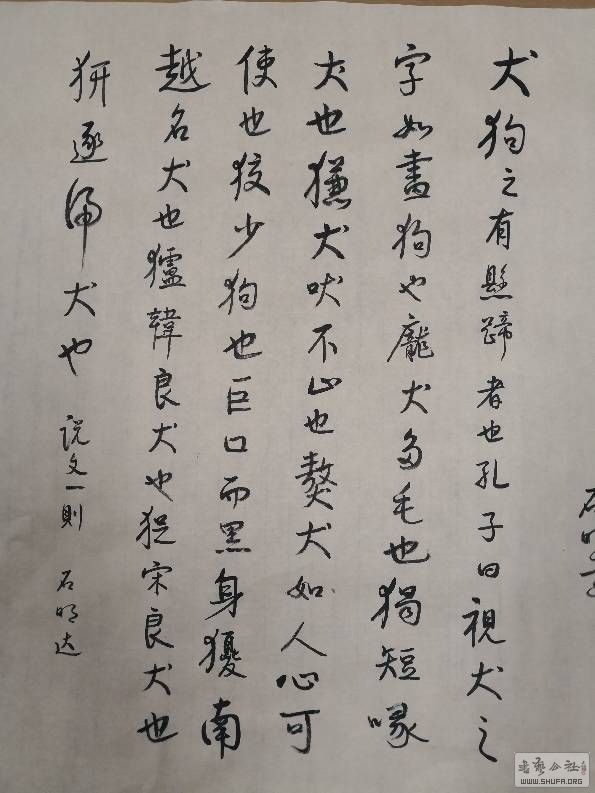 犬狗之有懸蹄者也孔子曰視犬之
字如畫狗也龐犬多毛也猲短喙
犬也㺌犬吠不止也獒犬如人心可
使也狡少狗也巨口而黑身獿南
越名犬也獹韓良犬也宋良犬也
逐虎犬也 說文一則 石明达
书艺公社
WWW.SHUFA.ORG